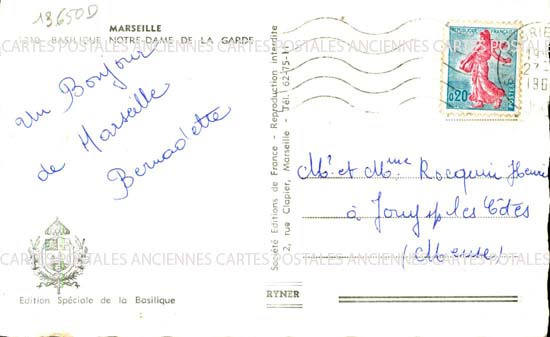 13650D
MARSEILLE
1210 - BASILIQUE NOTRE-DAME DE LA GARDE
CARTES POSTALES ANCIENNES CARTES POSTALES ANCIENNES CARTES POSTALES ANCIENNES
un Bonjour
de Marseille
Bernadette
Edition Spéciale de la Basilique
Société Editions de France - Reproduction interdite
2, rue Clapier, Marseille - Tél. 62-75-1
RYNER
0,20
POSTES
Mr et Mme Rocquin Henri
à Jouy s/ les Côtes
(Meuse)
CARTES POSTALES ANCIENNES CARTES POSTALES ANCIENNES CARTES POSTALES ANCIENNES